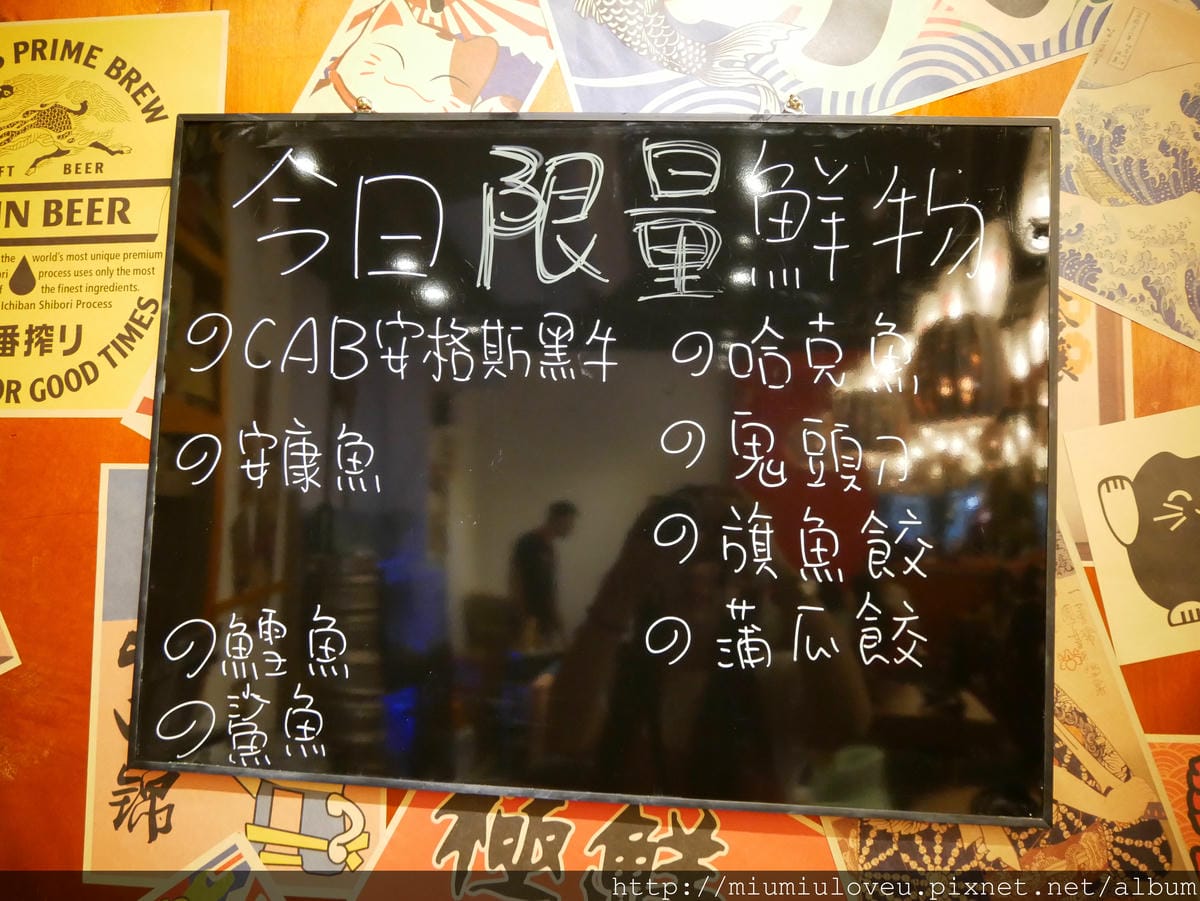 今日限量鮮物
のCAB安格斯黑牛
の安康魚
の鱈魚
の鯊魚
の哈克魚
の鬼頭刀
の旗魚餃
の蒲瓜餃
PRIME BREW
BEER
IN BEER
the world's most unique premium
process uses only the most
the finest ingredients.
Ichiban Shibori Process
番搾り
OR GOOD TIMES
錦
極鮮
http://miumiuloveu.pixnet.net/album